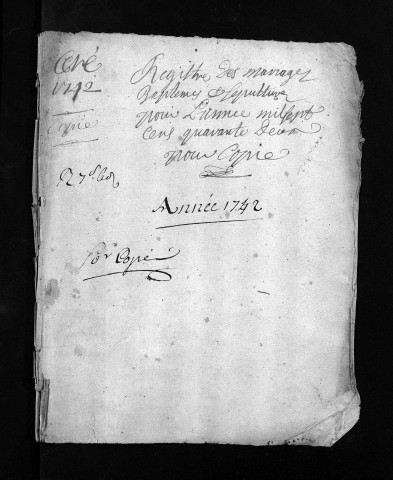 Ceré
1742
Copie
Registre Des mariages
Baptemes & sepultures
pour L'annee mil sept
cens quarante Deux
pour Copie
Année 1742
por Copie